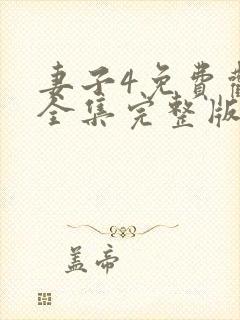 妻子4免费
全集完整版
盖帝